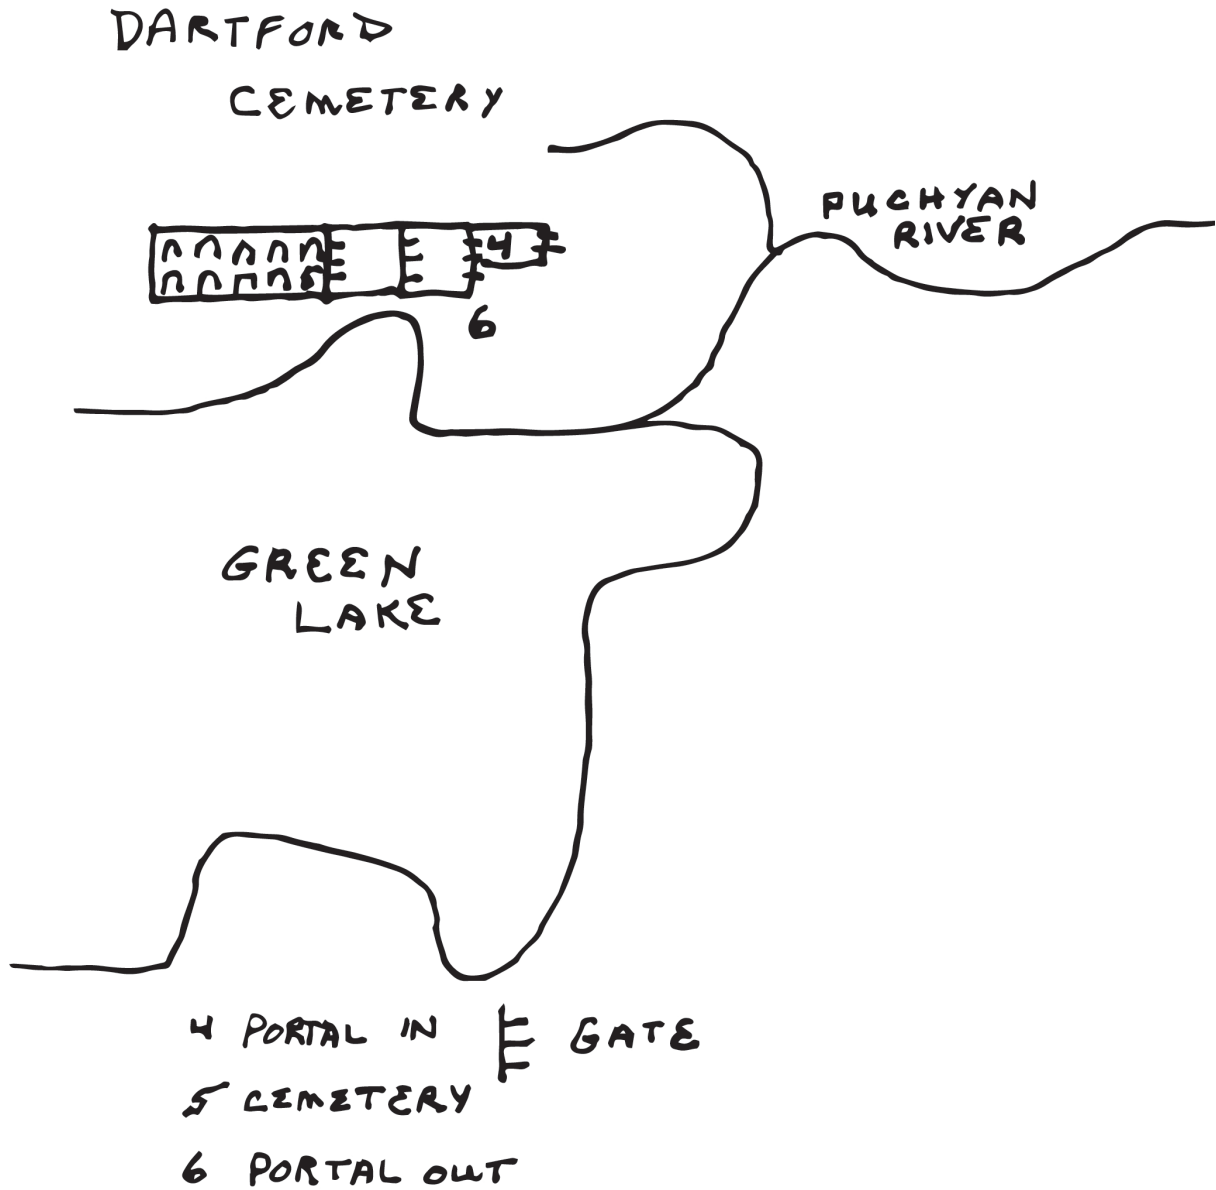 DARTFORD
CEMETERY
PUCHYAN
RIVER
4
5
6
GREEN
LAKE
4 PORTAL IN
GATE
5 CEMETERY
6 PORTAL OUT